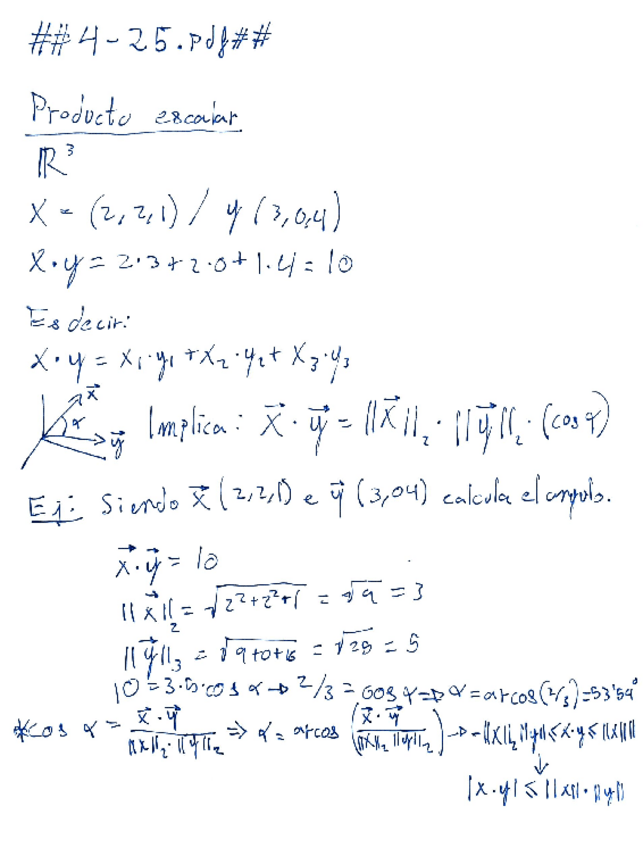 ##4-25.pdf##
Producto escalar
ℝ³
X = (2,2,1) / y (3,0,4)
X·y = 2·3+2·0+1·4 = 10
Es decir:
X·y = X₁·y₁ + X₂·y₂ + X₃·y₃
x⃗ α y⃗ Implica: x⃗·y⃗ = ||x⃗||₂·||y⃗||₂·(cos α)
Ej: Siendo x⃗ (2,2,1) e y⃗ (3,04) calcula el angulo.
x⃗·y⃗ = 10
||x⃗||₂ = √(2²+2²+1) = √9 = 3
||y⃗||₃ = √(9+0+16) = √25 = 5
10 = 3·5·cos α → 2/3 = cos α ⇒ α = arcos(2/3) = 53'54°
*cos α = x⃗·y⃗ / ||x||₂·||y||₂ ⇒ α = arcos (x⃗·y⃗ / ||x||₂ ||y||₂) → -||X||₂||y|| ≤ x·y ≤ ||x||||
↓
|x·y| ≤ ||x||·||y||